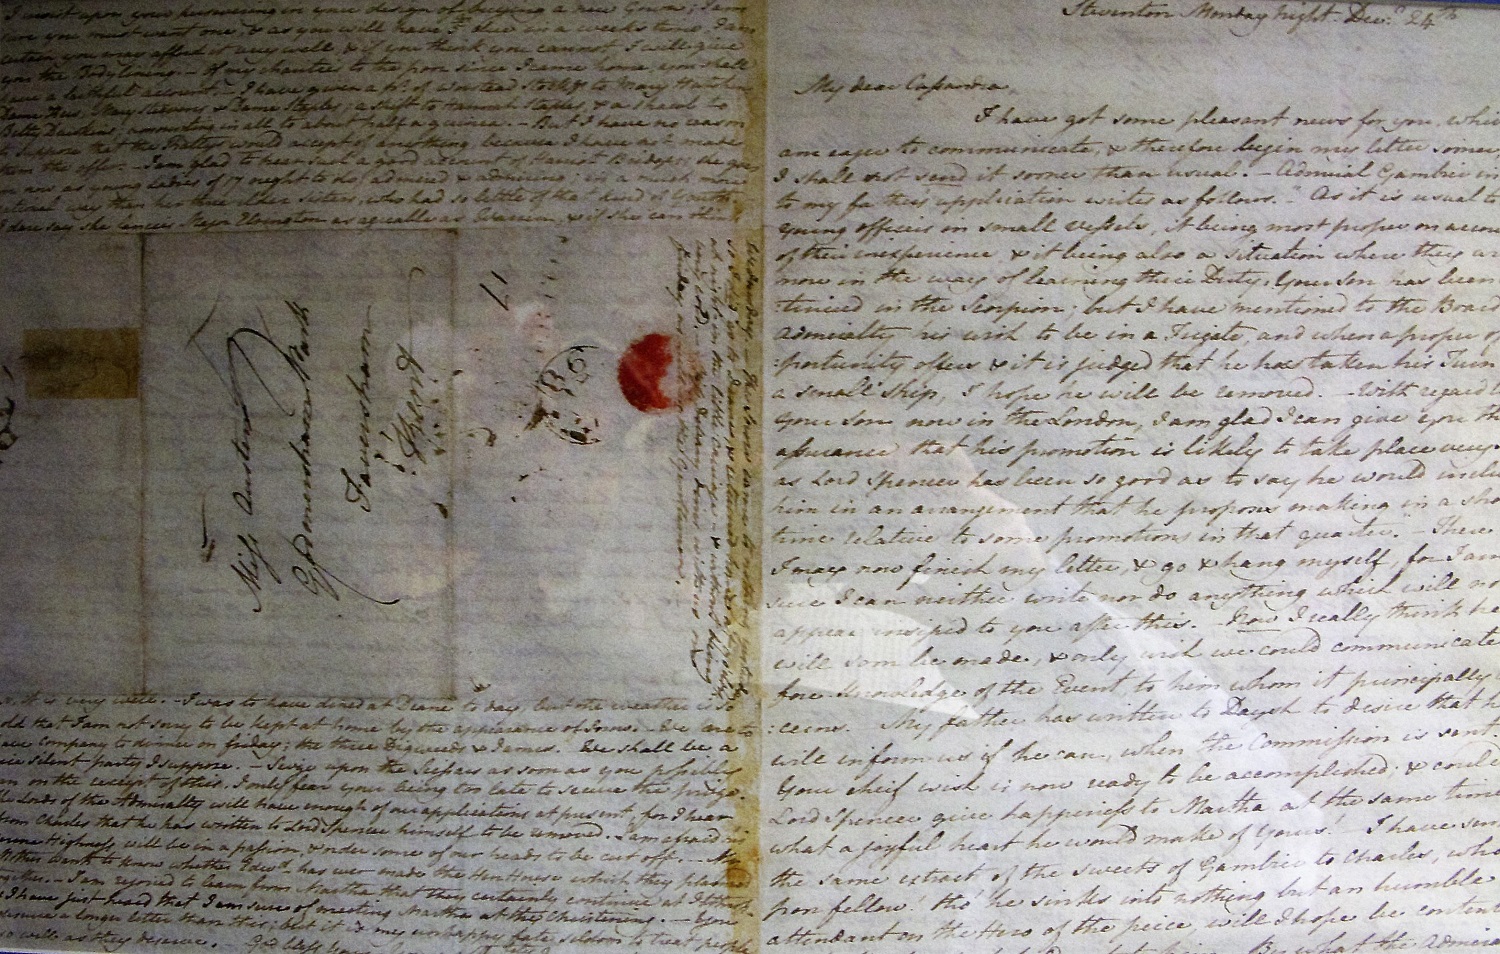 I insist upon your persevering in your design of buying a new Gown; I am
sure you must want one, & as you will have due in a week's time, I am
certain you may afford it very well, & if you think you cannot, I will give
you the Body lining. — Of my charities to the poor since I came home, you shall
have a faithful account. — I have given a pr. of Worsted Stockgs to Mary Hutchins
Dame Kew, Mary Steevens & Dame Staples; a shift to Hannah Staples, & a shawl to
Betty Dawkins; amounting in all to about half a guinea. — But I have no reason
to suppose that the Battys would accept of anything, because I have not made
them the offer. — I am glad to hear such a good account of Harriot Bridges; she goes
on now as young Ladies of 17 ought to do; admired & admiring; in a much more
rational way than her three elder Sisters, who had so little of that kind of Youth. —
I dare say she fancies Major Elrington as agreable as Warren, & if she can think
Miss Austen
Godmersham Park
Faversham
Kent
17
Wednesday. — The Snow came to nothing yesterday,
so I did go to Deane, & returned home at 9 o'clock
at night in the little carriage — & without being
very cold. — Miss Debary dines with us on
friday as well as the Gentlemen.
so, it is very well. — I was to have dined at Deane to day, but the weather is so
cold that I am not sorry to be kept at home by the appearance of Snow. — We are to
have Company to dinner on friday; the three Digweeds & James. — We shall be a
nice silent party I suppose. — Seize upon the Scissors as soon as you possibly
can on the receipt of this. I only fear your being too late to secure the prize. —
The Lords of the Admiralty will have enough of our applications at present, for I hear
from Charles that he has written to Lord Spencer himself to be removed. I am afraid his
Serene Highness will be in a passion, & order some of our heads to be cut off. — My
Mother wants to know whether Edwd. has ever made the Hen House which they planned
together. — I am rejoiced to learn from Martha that they certainly continue at Ibthrop,
& I have just heard that I am sure of meeting Martha at the Christening. — You
deserve a longer letter than this; but it is my unhappy fate seldom to treat people
so well as they deserve. — God bless you.
Steventon Monday Night Decr. 24th
My dear Cassandra
I have got some pleasant news for you, which
am eager to communicate, & therefore begin my letter sooner,
I shall not send it sooner than usual. — Admiral Gambier in
to my father's application writes as follows. — "As it is usual to
young officers in small vessels, it being most proper on accou
of their inexperience, & it being also a situation where they are
more in the way of learning their Duty, Your Son has been
tinued in the Scorpion; but I have mentioned to the Board
Admiralty his wish to be in a Frigate, and when a proper op
:portunity offers & it is judged that he has taken his Turn
a small Ship, I hope he will be removed. — With regard to
Your Son now in the London, I am glad I can give you the
assurance that his promotion is likely to take place very
as Lord Spencer has been so good as to say he would inclu
him in an arrangement that he proposes making in a sho
time relative to some promotions in that quarter." — There
I may now finish my letter, & go & hang myself, for I am
sure I can neither write nor do anything which will no
appear insipid to you after this. — Now I really think he
will soon be made, & only wish we could communicate
fore-knowledge of the Event, to him whom it principally
:cerns. — My father has written to Daysh to desire that h
will inform us if he can, when the Commission is sent. —
Your cheif wish is now ready to be accomplished; & could
Lord Spencer give happiness to Martha at the same time
what a joyful heart he would make of Yours! — I have sen
the same extract of the sweets of Gambier to Charles, who
poor fellow! tho' he sinks into nothing but an humble
attendant on the Hero of the peice, will I hope be content
By what the Admira